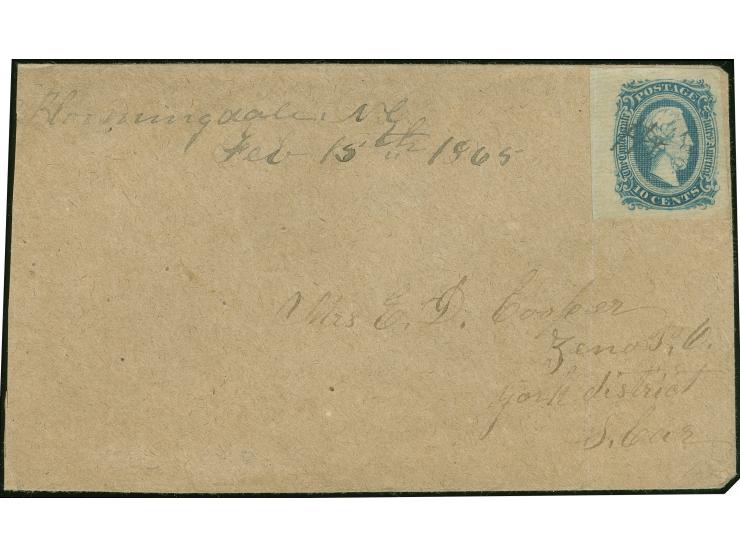 Bloomingdale. N C
Feb 15th 1865
POSTAGE
The Confederate States America
10 CENTS
Mrs E. D. Cooper
Zeno P. O.
York district
S. Car